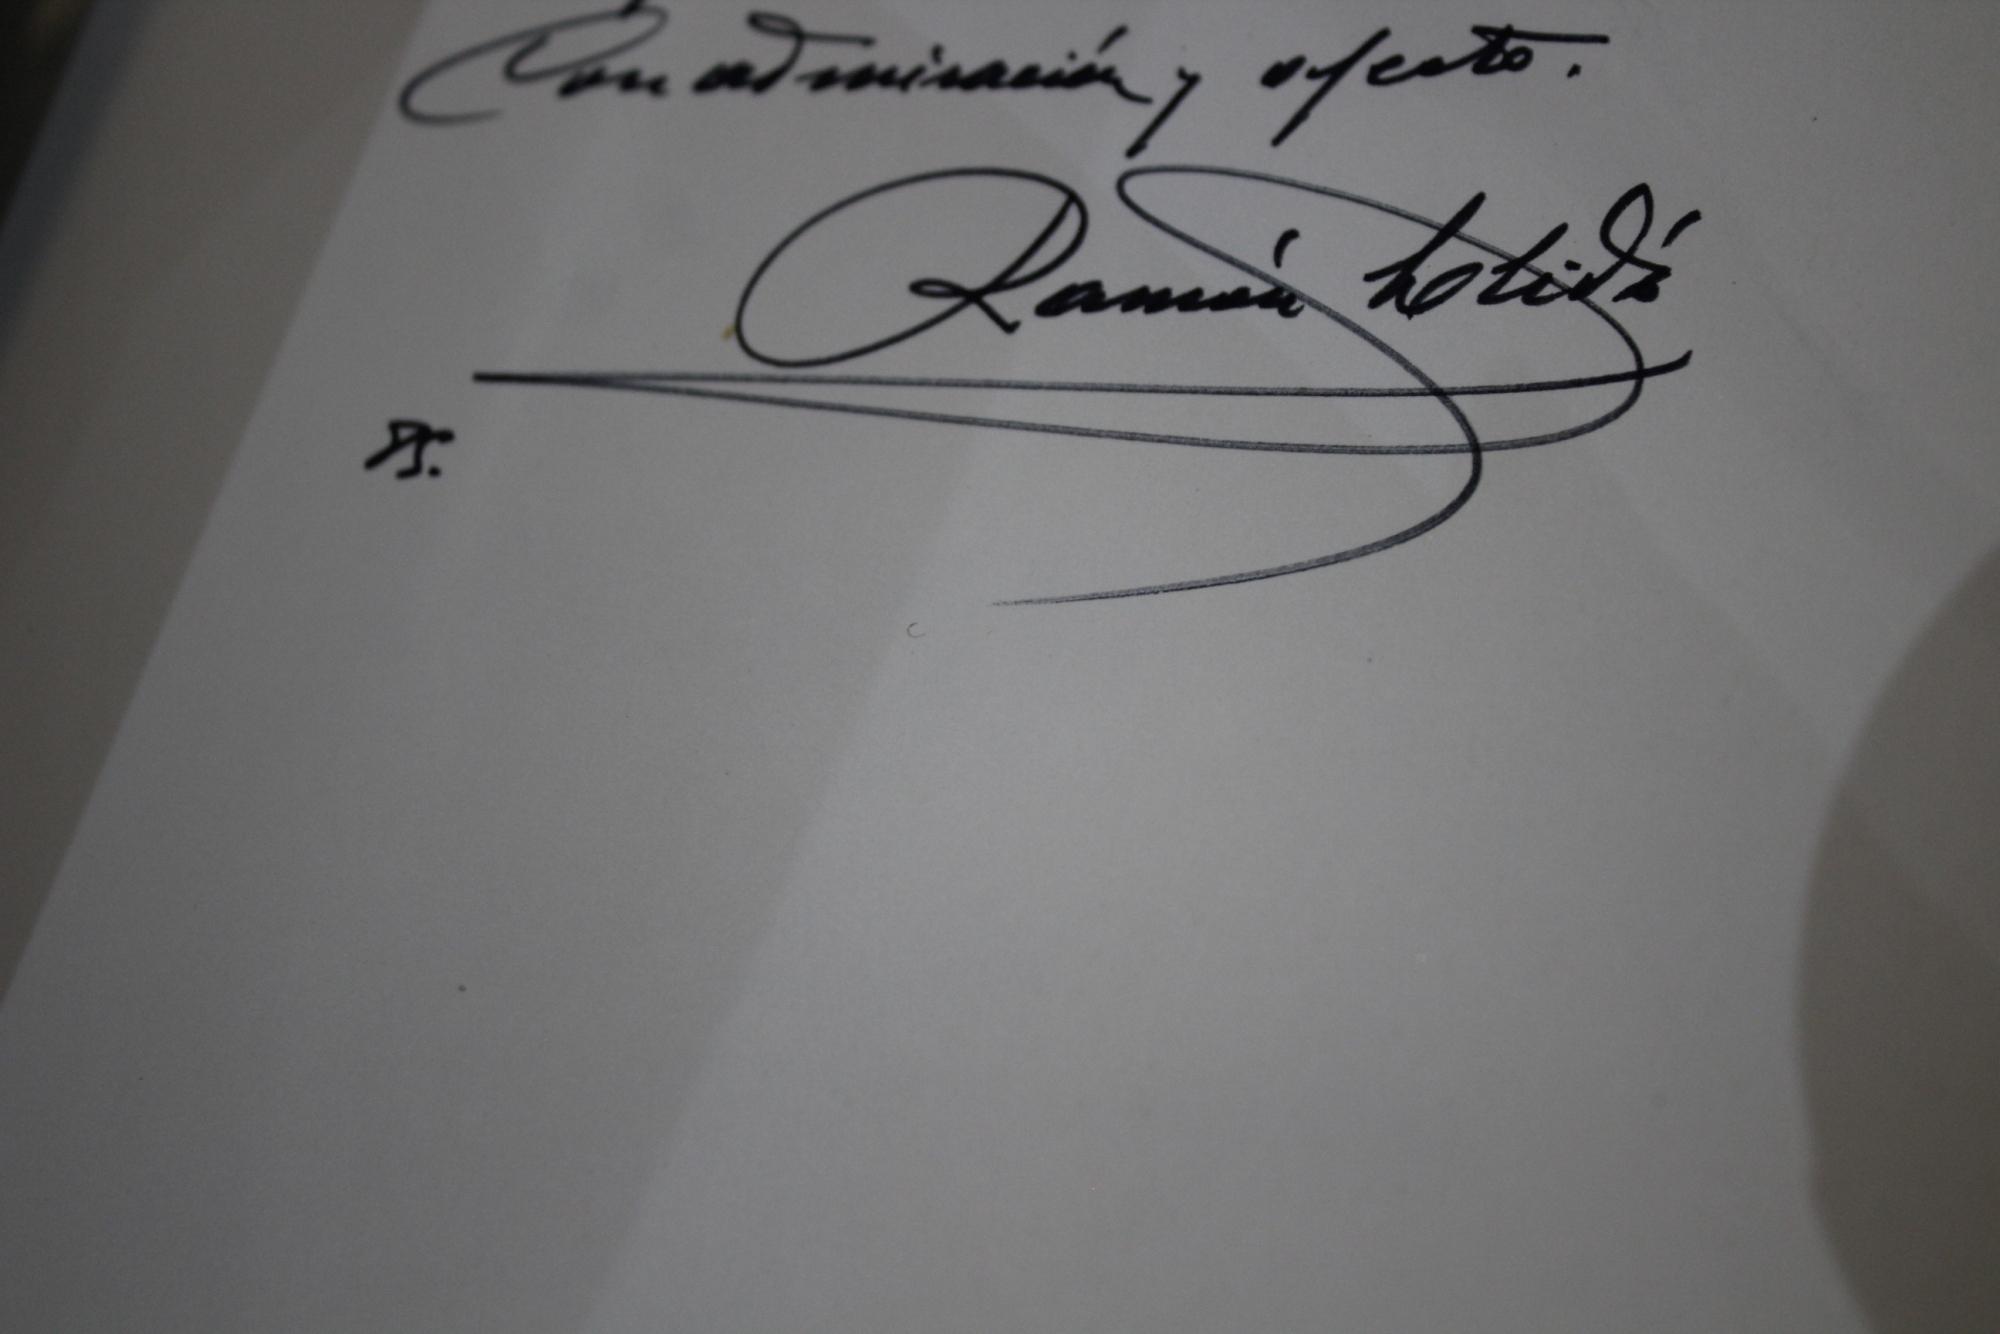 Con admiración y afecto.
Ramón
75.